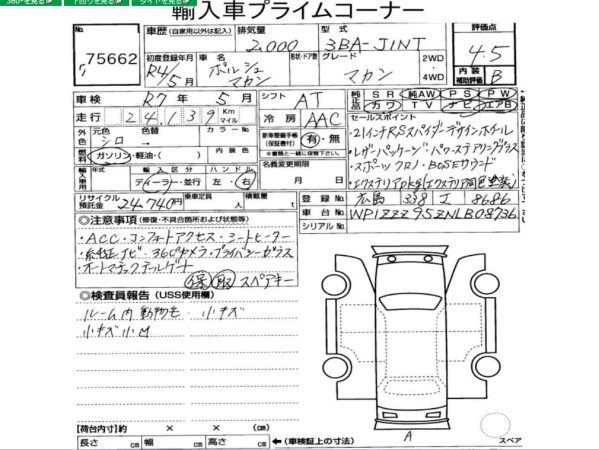 360°を見る 下回りを見る タイヤを見る
輸入車プライムコーナー
No. 75662
車歴 (自家用以外は記入) 排気量 型式 評価点
2,000 3BA-J1NT 4.5
初度登録年月 車名 形状・ドア数 グレード 2WD・4WD
R4/5月 ポルシェ マカン マカン
内装補助評価 B
車検 R7年 5月 シフト AT
純正品 SR 純AW PS PW
カワ TV ナビ エアB
走行 24,139 Km マイル 冷房 AAC
セールスポイント
外色 元色 色替 カラーNo.
シロ
・21インチRSスパイダーデザインホイール
燃料 ガソリン・軽油・( )
新車整備手帳(保証書付) 有・無
※書類と一緒に保管下さい。
・レザーパッケージ・パワーステアリングプラス
輸入車用 年式 入庫区分 ハンドル
ディーラー・並行 左・右
名義変更期限
月 日
・スポーツクロノ・BOSEサウンド
・エクステリアpkg(エクステリア同色塗装)
リサイクル預託金 24,740円 乗車定員 人 積載量 t
登録No. 広島 338 ユ 8686
車台No. WP1ZZZ95ZNLB08736
シリアルNo.
◎注意事項 (修復・不具合箇所および状態等)
・ACC・コンフォートアクセス・シートヒーター
・純正ナビ・360°カメラ・プライバシーガラス
・オートマチックテールゲート
保 取 スペアキー
◎検査員報告 (USS使用欄)
ルーム内動物毛 小キズ
小キズ小M
【荷台内寸】約 × × (cm)
長さ cm 幅 cm 高さ cm ←(車検証上の寸法)
A
スペア